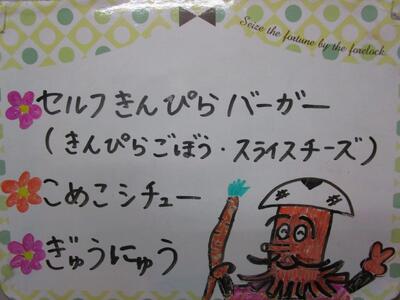 Seize the fortune by the forelock.
セルフきんぴらバーガー
(きんぴらごぼう・スライスチーズ)
こめこシチュー
ぎゅうにゅう